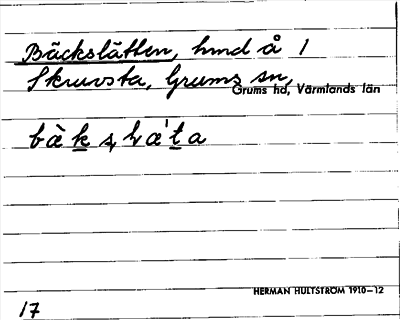 Bäckslätten, hmd å 1
Skruvsta, Grums sn,
Grums hd, Värmlands län
HERMAN HULTSTRÖM 1910–12
17